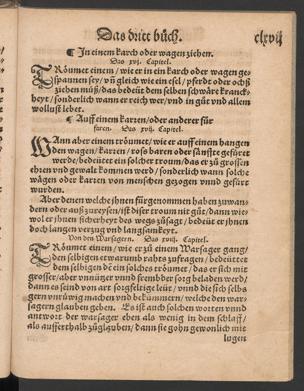 Das dritt büch. clxvij
¶ In einem karch oder wagen ziehen.
Das xvj. Capitel.
TRöumet einem / wie er in ein karch oder wagen ge-
spannen sey / vñ gleich wie ein esel / pferdt oder ochß
ziehen müß / das bedeüt dem selben schwäre kranck-
heyt / sonderlich wann er reich wer / vnd in güt vnd allem
wollust lebet.
¶ Auff einem karren / oder anderer für
faren. Das xvij. Capitel.
WAnn aber einem tröumet / wie er auff einem hangen
den wagen / karren / roßbaren oder sänffte gefüret
werde / bedeütet ein solcher troum / das er zü grossen
ehren vnd gewalt kommen werd / sonderlich wann solche
wägen oder karren von menschen gezogen vnnd gefürt
wurden.
Aber denen welche jnen fürgenommen haben zuwan-
dern oder außzureysen / ist diser troum nit güt / dann wie-
wol er jhnen sicherheyt des wegs züsagt / bedeüt er jhnen
doch langen verzug vnd langsamkeyt.
Von den Warsagern. Das xviij. Capitel.
TRöumet einem / wie er zü einem Warsager gang /
den selbigen etwarumb rahts zufragen / bedeüttet
dem selbigen der ein solchs tröumet / das er sich mit
grosser / aber vnnützer vnnd frembder sorg beladen werd /
dann es seind von art sorgfeltige leüt / vnnd die sich selbs
gern vnrüwig machen vnd bekümmern / welche den war-
sagern glauben geben. Es ist auch solchen worten vnnd
antwort der warsager eben als wenig in dem schlaff /
als ausserthalb züglauben / dann sie gohn gewonlich mit
lugen